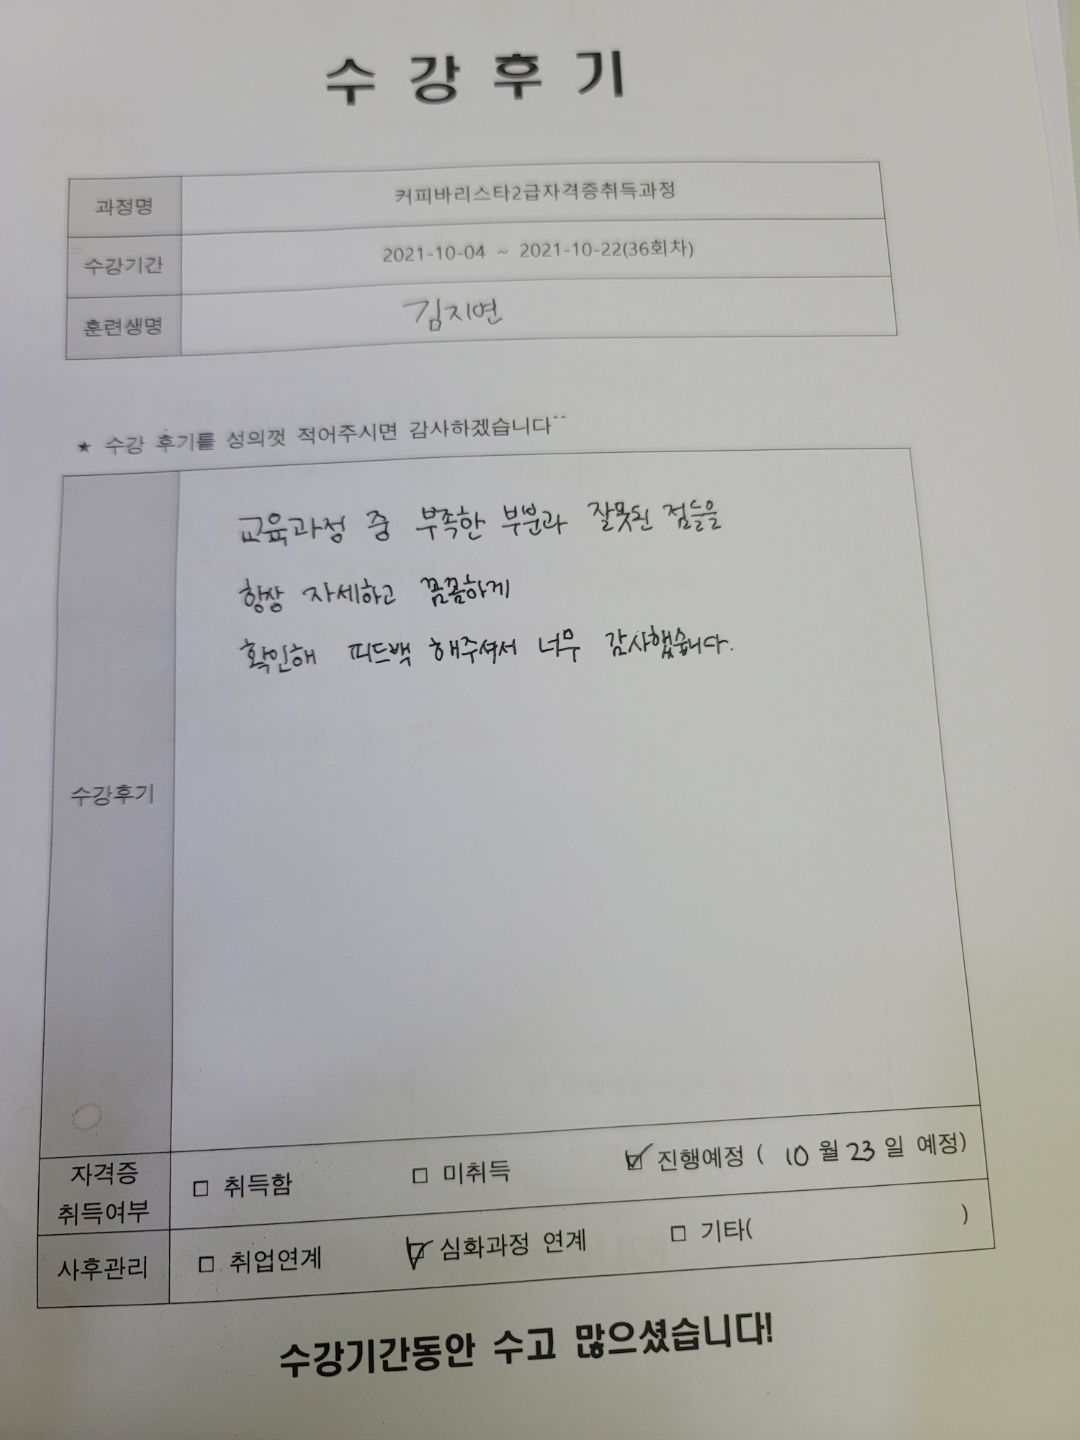 수 강 후 기
과정명 커피바리스타2급자격증취득과정
수강기간 2021-10-04 ~ 2021-10-22(36회차)
훈련생명 김지연
★ 수강 후기를 성의껏 적어주시면 감사하겠습니다^^
교육과정 중 부족한 부분과 잘못된 점들을
항상 자세하고 꼼꼼하게
확인해 피드백 해주셔서 너무 감사했습니다.
수강후기
자격증
취득여부
□ 취득함 □ 미취득 ☑ 진행예정 ( 10 월 23 일 예정)
사후관리 □ 취업연계 ☑ 심화과정 연계 □ 기타( )
수강기간동안 수고 많으셨습니다!